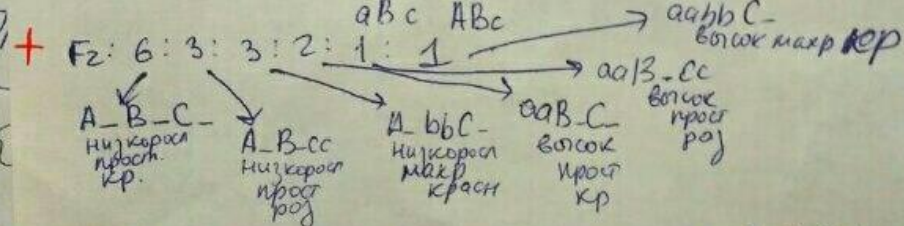 aBc ABc
+ F2: 6 : 3 : 3 : 2 : 1 : 1
aabbC-
высок махр кр
aaB-cc
высок
прост
роз
A_B_C_
низкоросл
прост.
кр.
A_B_cc
низкоросл
прост
роз
A_bbC-
низкоросл
махр
красн
aaB_C_
высок
прост
кр